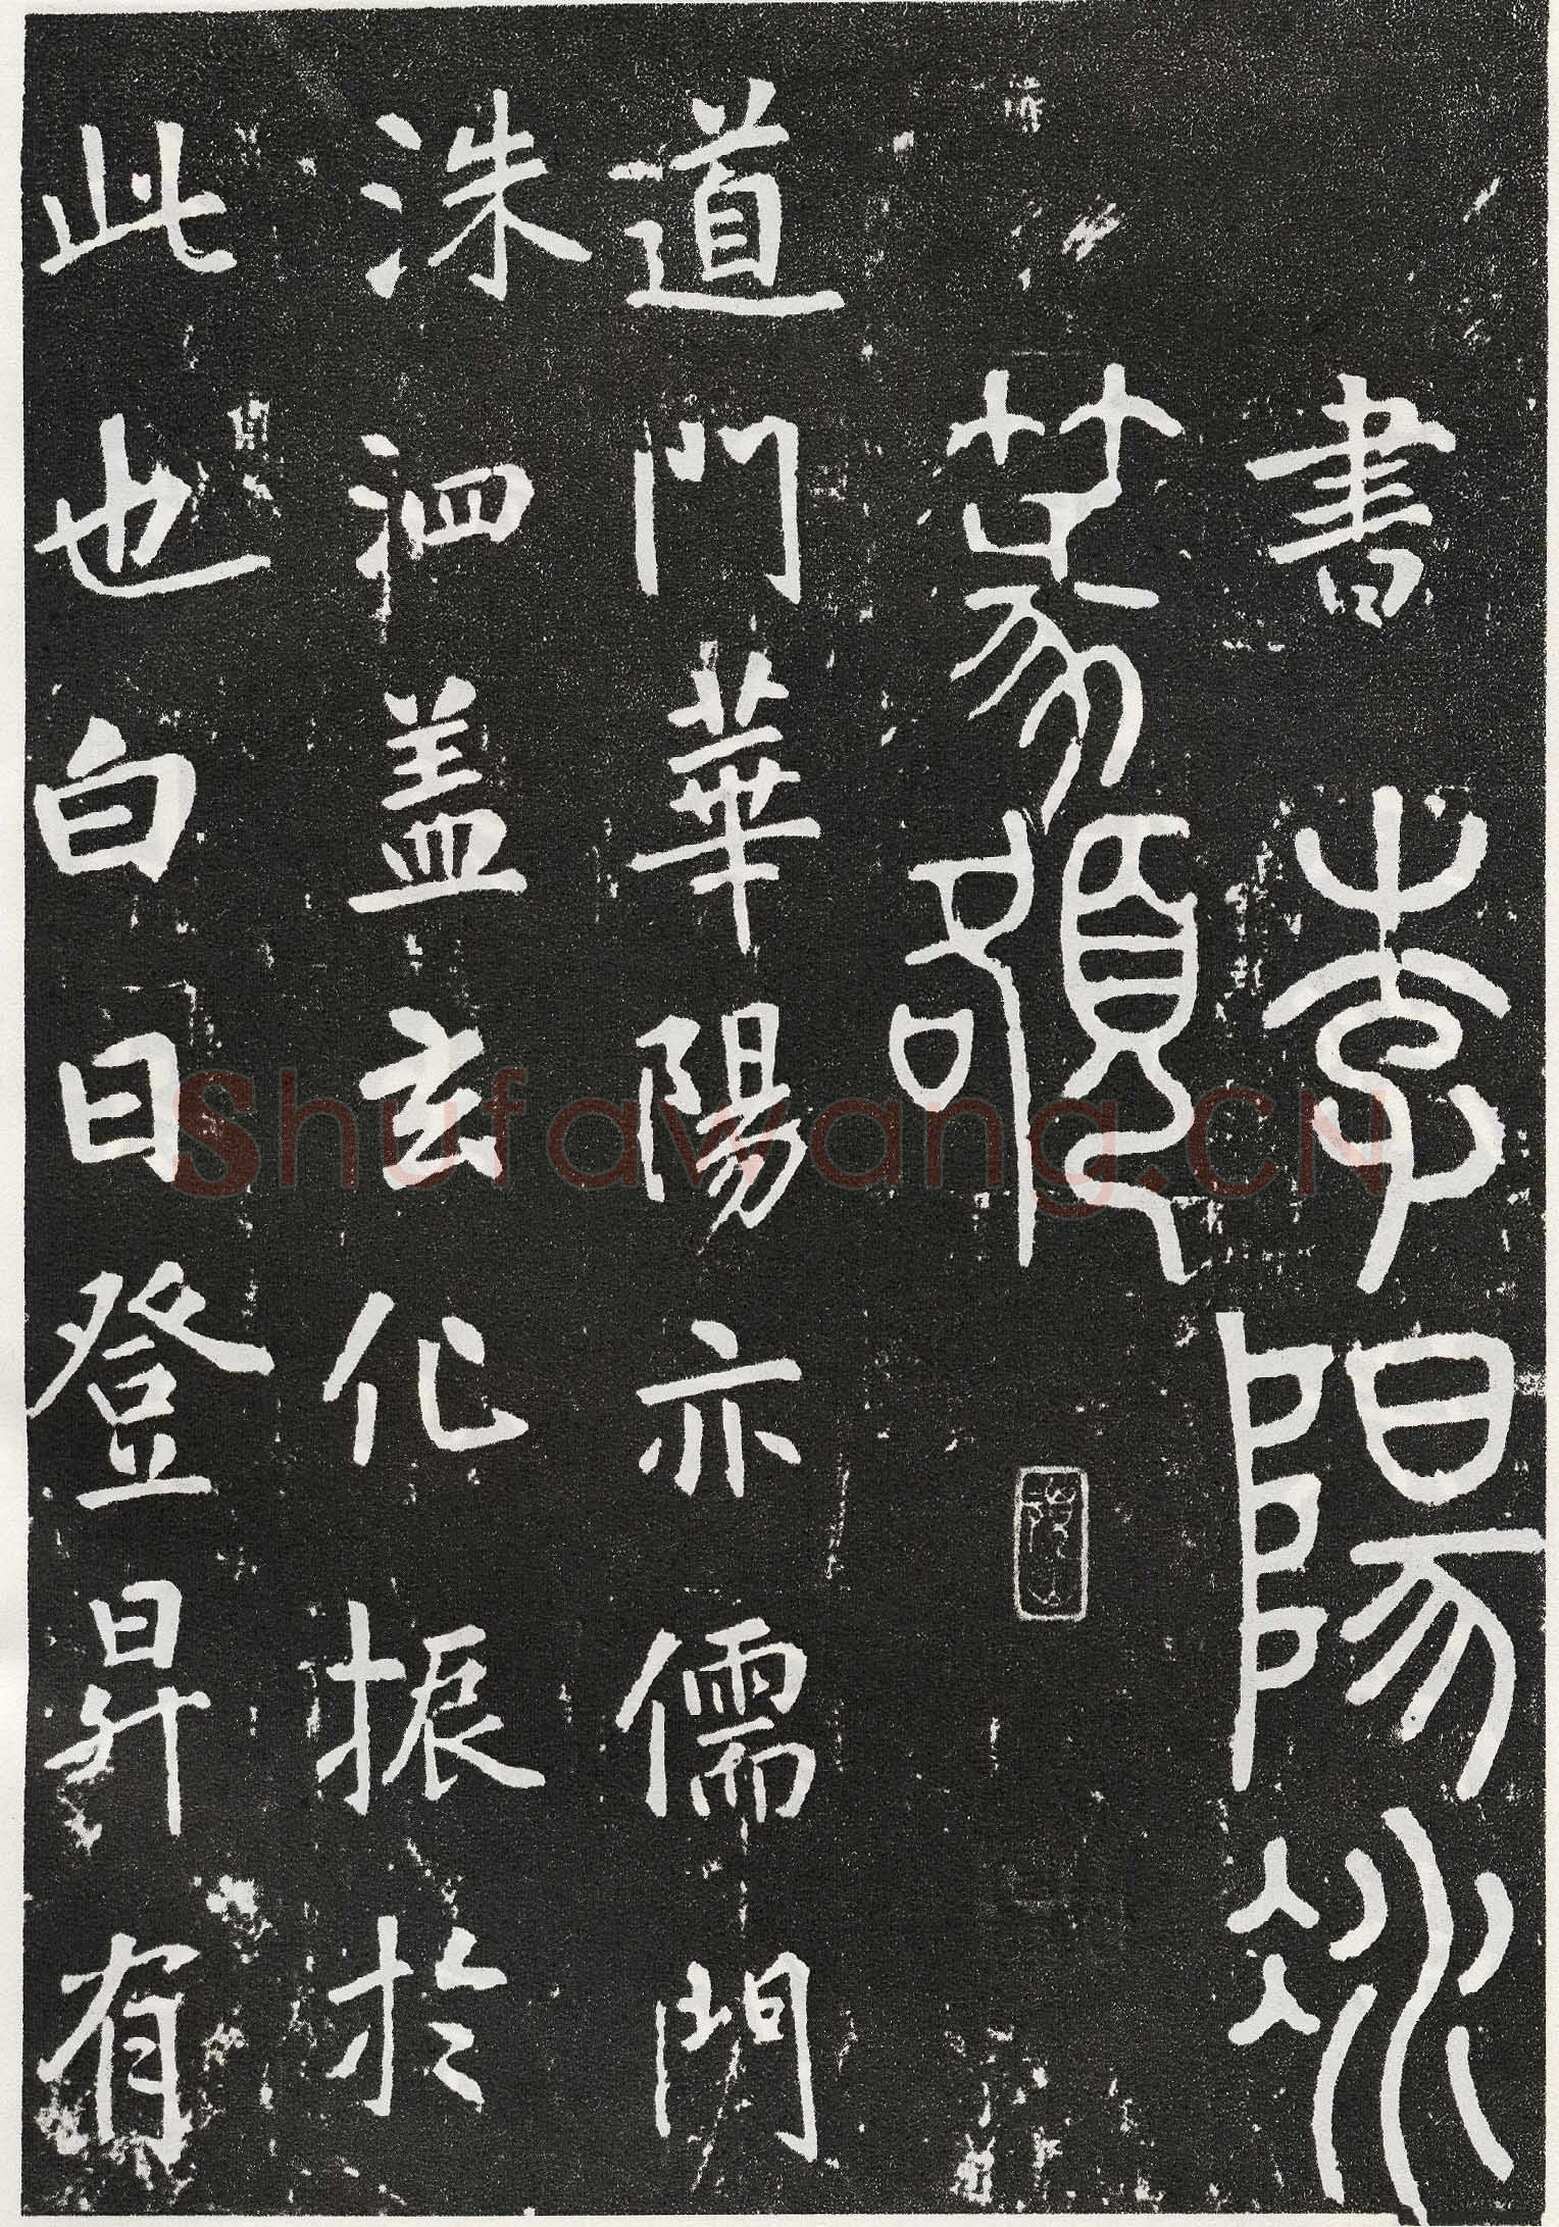 書李陽冰
篆額
道門華陽亦儒門
洙泗盖玄化振於
此也白日登昇有
Shufawang.CN